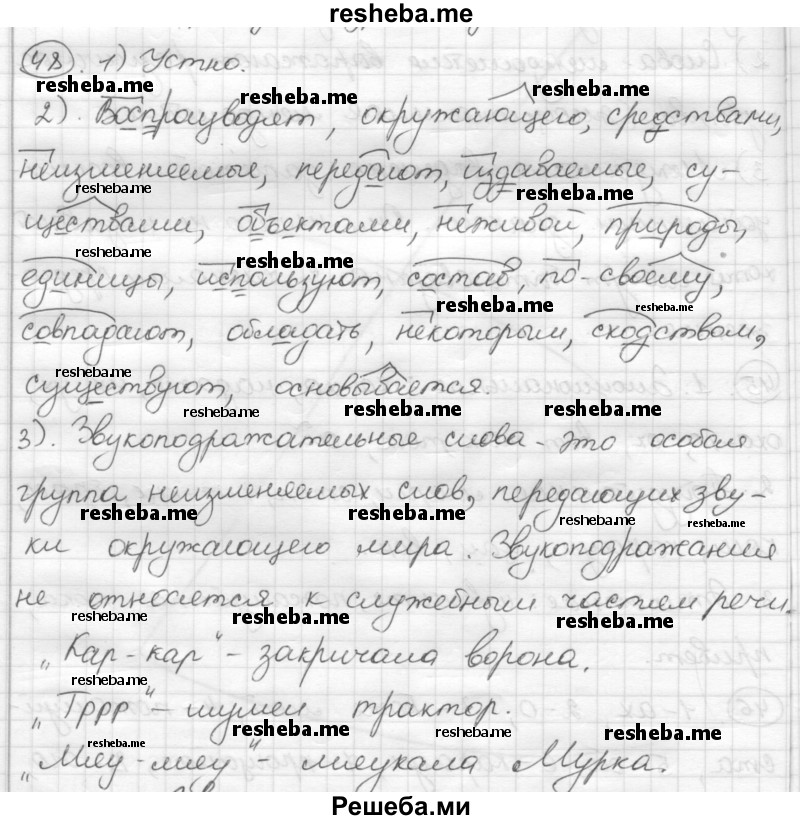 resheba.me
48. 1) Устно.
resheba.me resheba.me resheba.me
2). Воспроизводят, окружающего, средствами,
неизменяемые, передают, издаваемые, су-
resheba.me resheba.me resheba.me
ществами, объектами, неживой, природы,
resheba.me
единицы, используют, состав, по-своему,
resheba.me resheba.me resheba.me
совпадают, обладать, некоторым, сходством,
resheba.me
существуют, основывается.
resheba.me resheba.me resheba.me
3). Звукоподражательные слова - это особая
группа неизменяемых слов, передающих зву-
resheba.me resheba.me resheba.me resheba.me
ки окружающего мира. Звукоподражания
не относятся к служебным частям речи.
resheba.me resheba.me resheba.me
„Кар-кар“ - закричала ворона.
resheba.me
„Тррр“ - шумел трактор.
resheba.me resheba.me resheba.me resheba.me
„Мяу-мяу“ - мяукала Мурка.
Решеба.ми